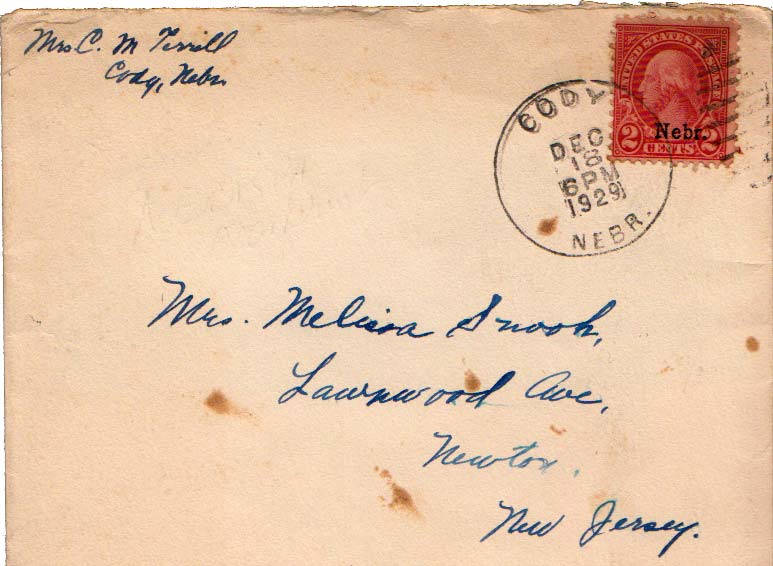 Mrs C. M Terrill
Cody, Nebr
UNITED STATES POSTAGE
Nebr.
2 CENTS 2
CODY
DEC
18
6PM
1929
NEBR.
Mrs. Melissa Snook,
Lawnwood Ave,
Newton,
New Jersey.